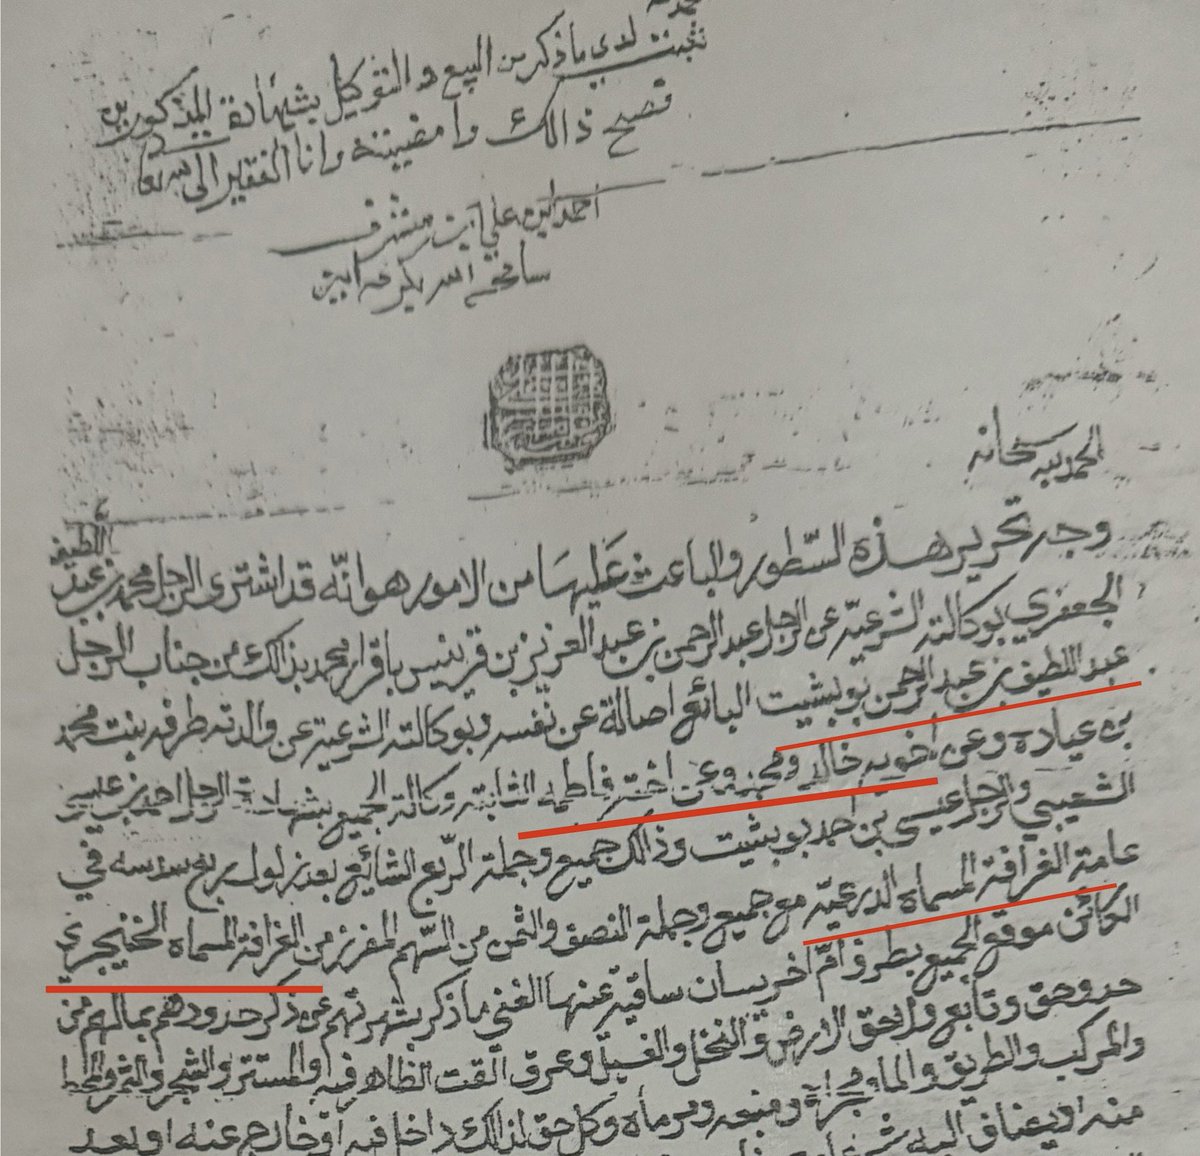 ثبت لدي ما ذكر من البيع والتوكيل بشهادة المذكورين
فصح ذالك وامضيته وانا الفقير الى الله تعا
احمد ابن علي ابن مشرف
سامحهم الله
الحمد لله سبحانه
وجه تحرير هذه السّطور والباعث عَليهَا من الامور هو انّه قد اشترى الرجل محمد بن عبد اللطيف
الجعفري بوكالته الشرعيّة عن الرجل عبد الرحمن بن عبد العزيز بن قرينيس باقرار محمد بذالك من جناب الرجل
عبد اللطيف بن عبد الرحمن بو بشيت البائع اصالة عن نفسه وبوكالته الشرعية عن والدته طرفه بنت محمد
بن عياده وعن اخويه خالد ومحمد وعن اخته فاطمه الثابتة وكالة الجميع بشهادة الرجل احمد بن عيسى
الشعيبي والرجل عيسى بن احمد بو بشيت وذالك جميع وجملة الرّبع الشائع بعد نزول ربع سدسه في
عامة الغرافة المسماة الدرعيّة مع جميع وجملة النصف والثمن من السّهم المفرز من الغرافة المسماه الخنيجري
الكائن موقع الجميع بطرف امّ اخريسان ساقية عنها الغني ما ذكر بشهرتهم عن ذكر حدودهم بمالهم من
حد وحق وتابع ولاحق الارض والنخل والفسيل وعرق القت الظاهر فيه والمستتر والشجر والثمر
والمركب والطريق والما ومجراه ومنبعه ومرماه وكل حق لذالك داخل فيه او خارج عنه او يعد
منه او يضاف اليه